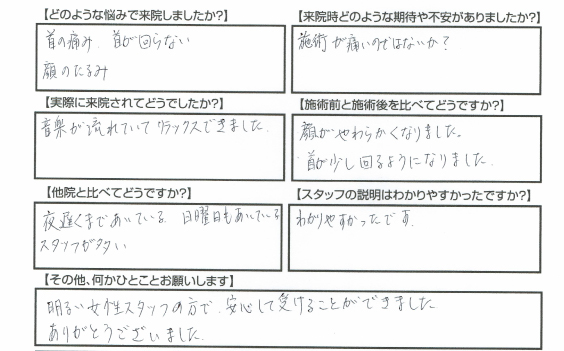 【どのような悩みで来院しましたか?】
首の痛み 首が回らない
顔のたるみ
【来院時どのような期待や不安がありましたか?】
施術が痛いのではないか?
【実際に来院されてどうでしたか?】
音楽が流れていてリラックスできました。
【施術前と施術後を比べてどうですか?】
顔がやわらかくなりました。
首が少し回るようになりました。
【他院と比べてどうですか?】
夜遅くまであいている 日曜日もあいている
スタッフが多い
【スタッフの説明はわかりやすかったですか?】
わかりやすかったです。
【その他、何かひとことお願いします】
明るい女性スタッフの方で、安心して受けることができました
ありがとうございました。